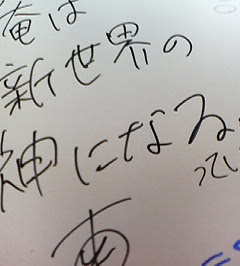 俺は
新世界の
神になる
って